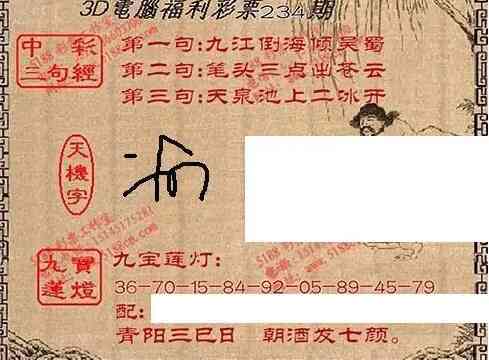 3D電腦福利彩票234期
中彩
三句經
第一句:九江倒海倾吴蜀
第二句:笔头三点出苍云
第三句:天泉池上二冰开
天機字
九寶
蓮燈
九宝莲灯:
36-70-15-84-92-05-89-45-79
配:
青阳三巳日 朝酒发七颜。